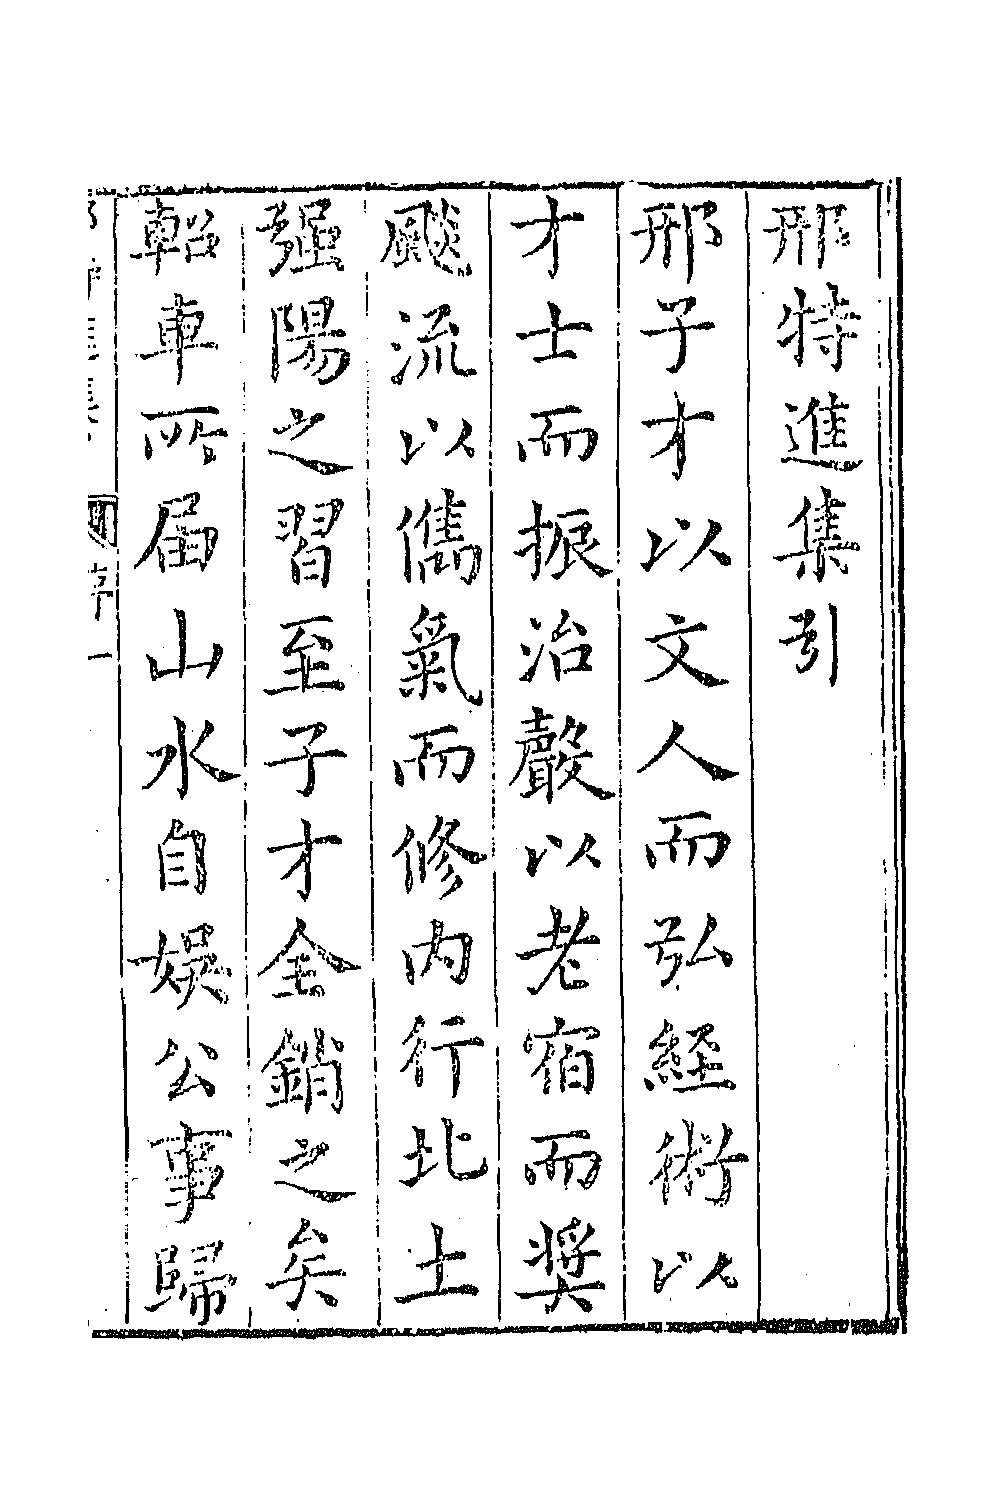 邢特進集引
邢子才以文人而弘經術以
才士而振治聲以老宿而奬
颷流以儁氣而修内行北土
强陽之習至子才全銷之矣
軺車所届山水自娛公事歸
序 一